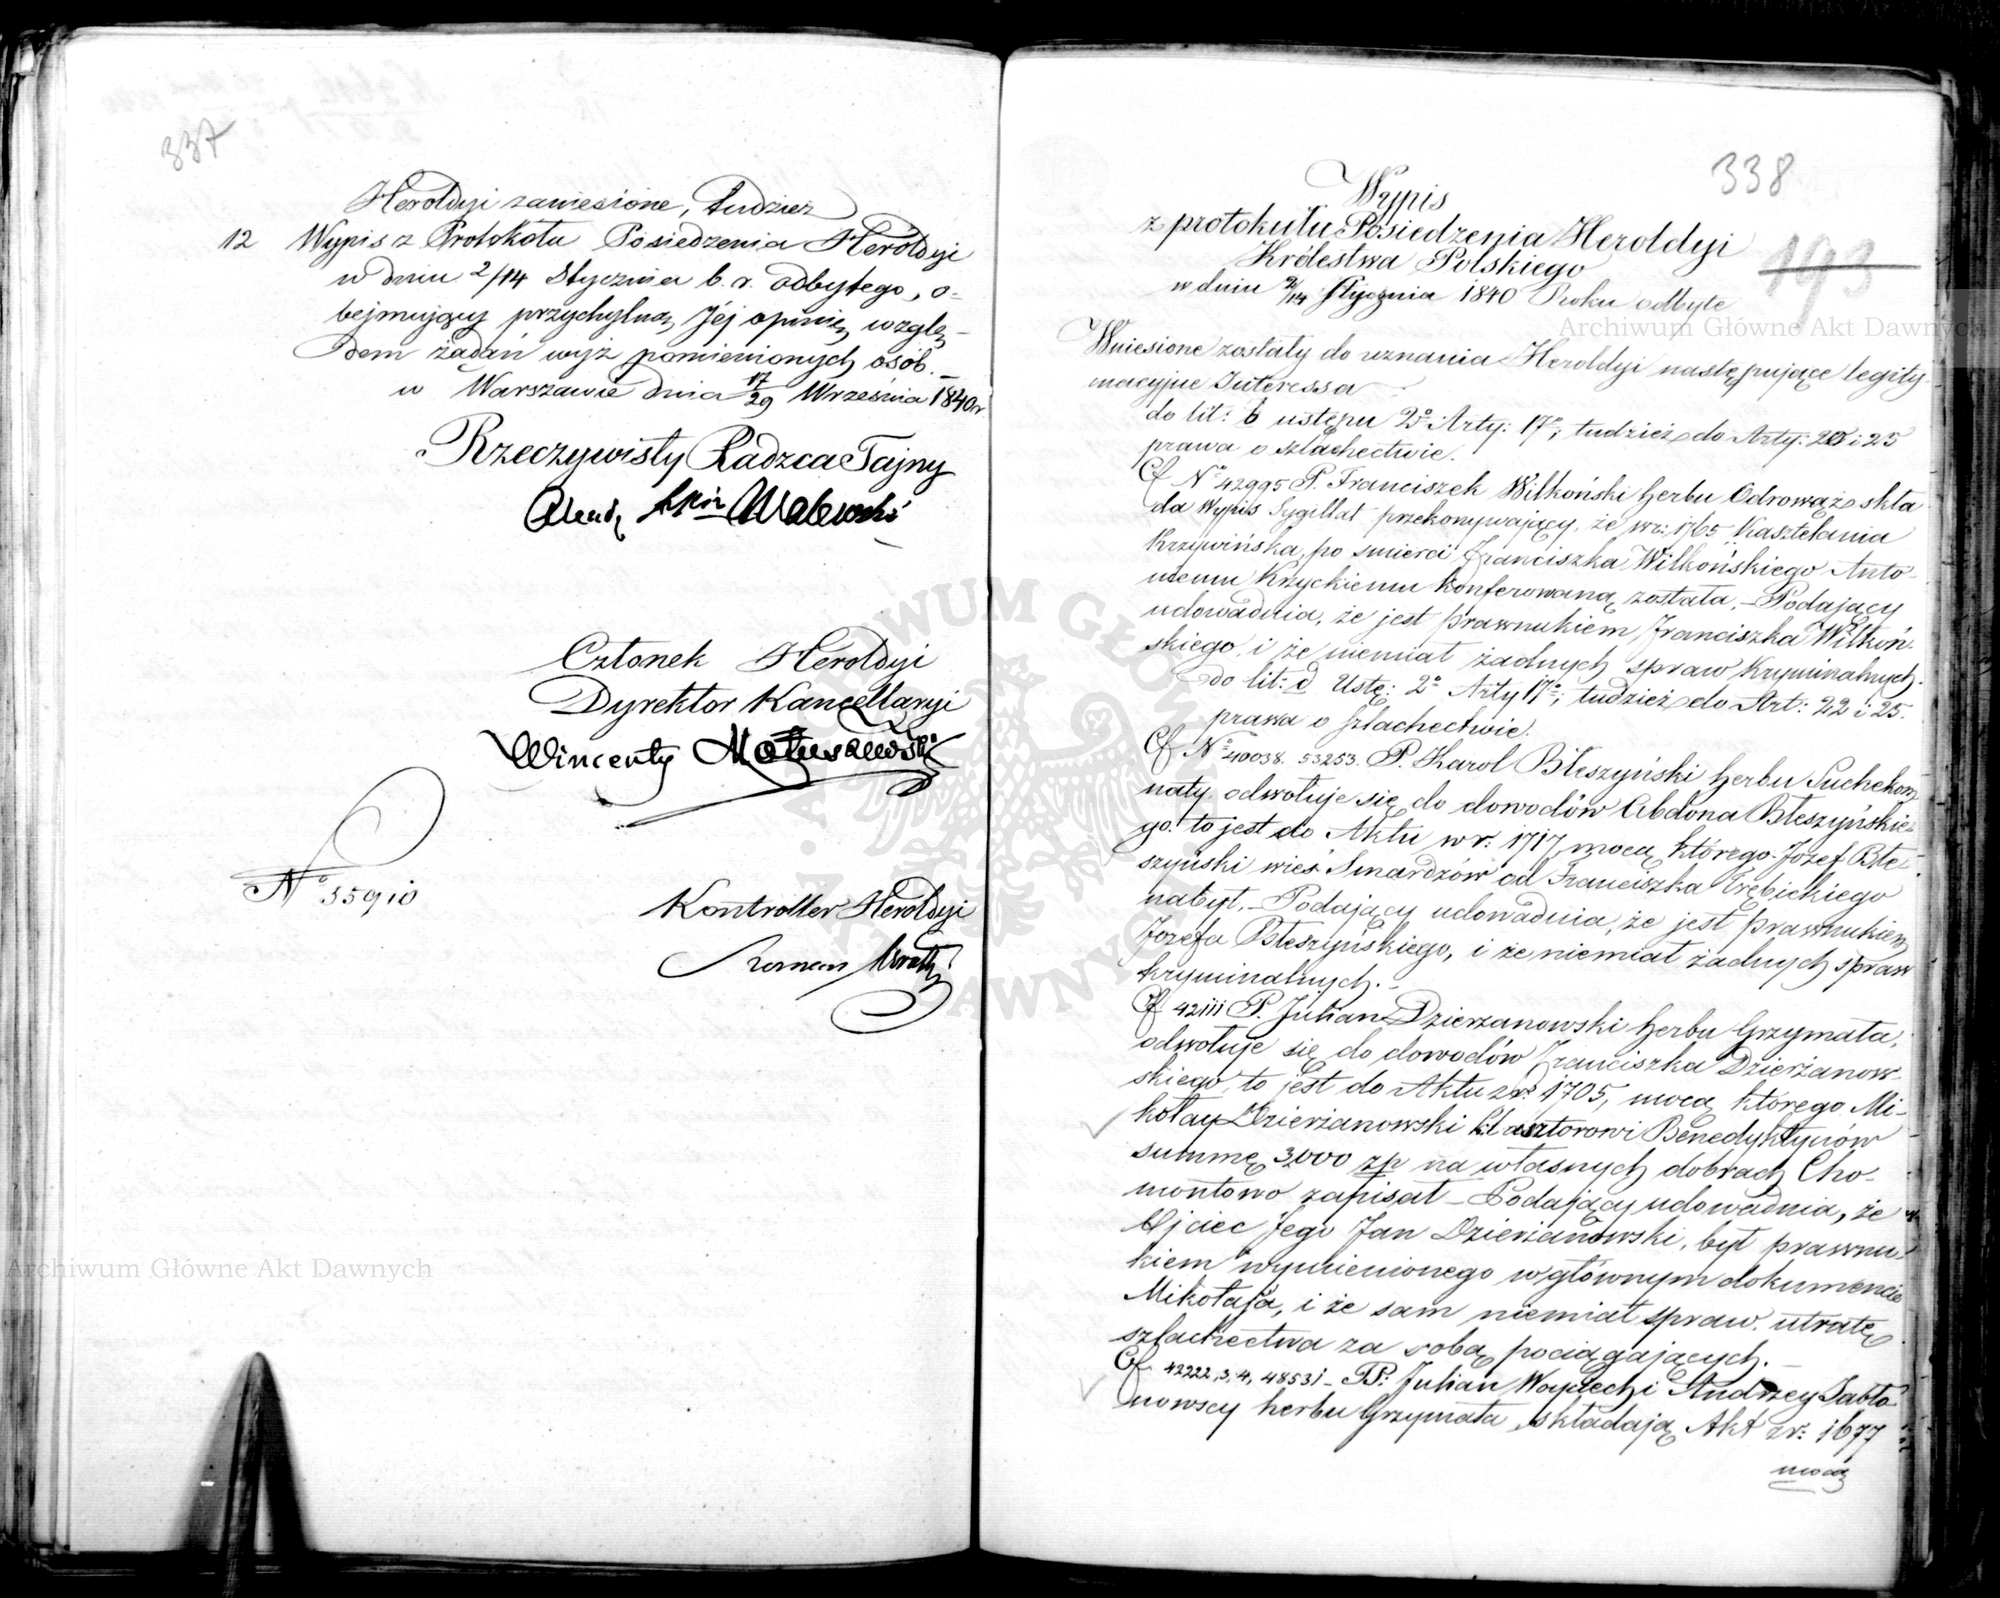 337
Heroldyi zaniesione, tudzież
12 Wypis z Protokołu Posiedzenia Heroldyi
w dniu 2/14 Stycznia b. r. odbytego, o-
bejmujący przychylną Jéj opinię wzglę-
dem żądań wyż pomienionych osób.
w Warszawie dnia 17/29 Września 1840 r
Rzeczywisty Radzca Tajny
Walewski
Członek Heroldyi
Dyrektor Kancellaryi
Wincenty Matuszewski
No 55910
Kontroller Heroldyi
Roman
338
193
Wypis
z protokułu Posiedzenia Heroldyi
Królestwa Polskiego
w dniu 2/14 Stycznia 1840 Roku odbyte
Wniesione zostały do uznania Heroldyi następujące legity-
macyjne Interessa
do lit: b ustępu 2o Arty: 17o; tudzież do Arty: 20 i 25
prawa o szlachectwie.
No 42995 P. Franciszek Wilkoński herbu Odrowąż skła
da Wypis Sygillat przekonywający, że w r: 1765 Kasztelania
Krzywińska, po smierci Franciszka Wilkońskiego Anto-
niemu Krzyckiemu konferowaną została. – Podający
udowadnia, że jest prawnukiem Franciszka Wilkoń-
skiego, i że niemiał żadnych spraw kryminalnych.
do lit: d Ustę: 2o Arty 17o; tudzież do Art: 22 i 25.
prawa o szlachectwie.
No 40038. 53253. P. Karol Błeszyński herbu Suchekom
naty, odwołuje się do dowodów Abdona Błeszyńskie-
go. to jest do Aktu w r: 1717, mocą którego Józef Błe-
szyński wieś Smardzów od Franciszka Trębickiego
nabył. – Podający udowadnia, że jest prawnukiem
Józefa Błeszyńskiego, i że niemiał żadnych spraw
kryminalnych. –
42111 P. Julian Dzierzanowski herbu Grzymała,
odwołuje się do dowodów Franciszka Dzierżanow-
skiego, to jest do Aktu z r: 1705, mocą którego Mi-
kołay Dzierżanowski klasztorowi Benedyktynów
summę 3,000 zp na własnych dobrach Cho-
montowo zapisał – Podający udowadnia, że
Ojciec Jego Jan Dzierżanowski, był prawnu-
kiem wymienionego w głównym dokumencie
Mikołaja, i że sam niemiał spraw. utratę
szlachectwa za sobą pociągających. –
42222, 3, 4, 48531 – PP: Julian Woyciech i Andrzey Jabło
nowscy herbu Grzymała, składają Akt z r: 1677
mocą
Archiwum Główne Akt Dawnych
Archiwum Główne Akt Dawnych
ARCHIWUM GŁÓWNE AKT DAWNYCH